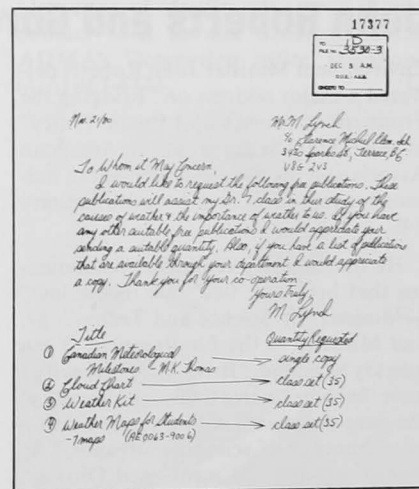 17377
TO
FILE NO. 3530-3
DEC 5 A.M.
Nov. 21/80
Mr. M Lynch
c/o Clarence Michiel Elem. Sch
Sparks St, Terrace, BC
V8G 2V3
To Whom it May Concern,
I would like to request the following free publications. These
publications will assist my Gr. 7 class in their study of the
causes of weather & the importance of weather to us. If you have
any other suitable free publications I would appreciate your
sending a suitable quantity. Also, if you have a list of publications
that are available through your department I would appreciate
a copy. Thank you for your co-operation
Yours truly,
M Lynch
Title Quantity Requested
① Canadian Meteorological single copy
Milestones - M.K. Thomas
② Cloud Chart class set (35)
③ Weather Kit class set (35)
④ Weather Maps for Students class set (35)
-7 maps (AE0063-9006)